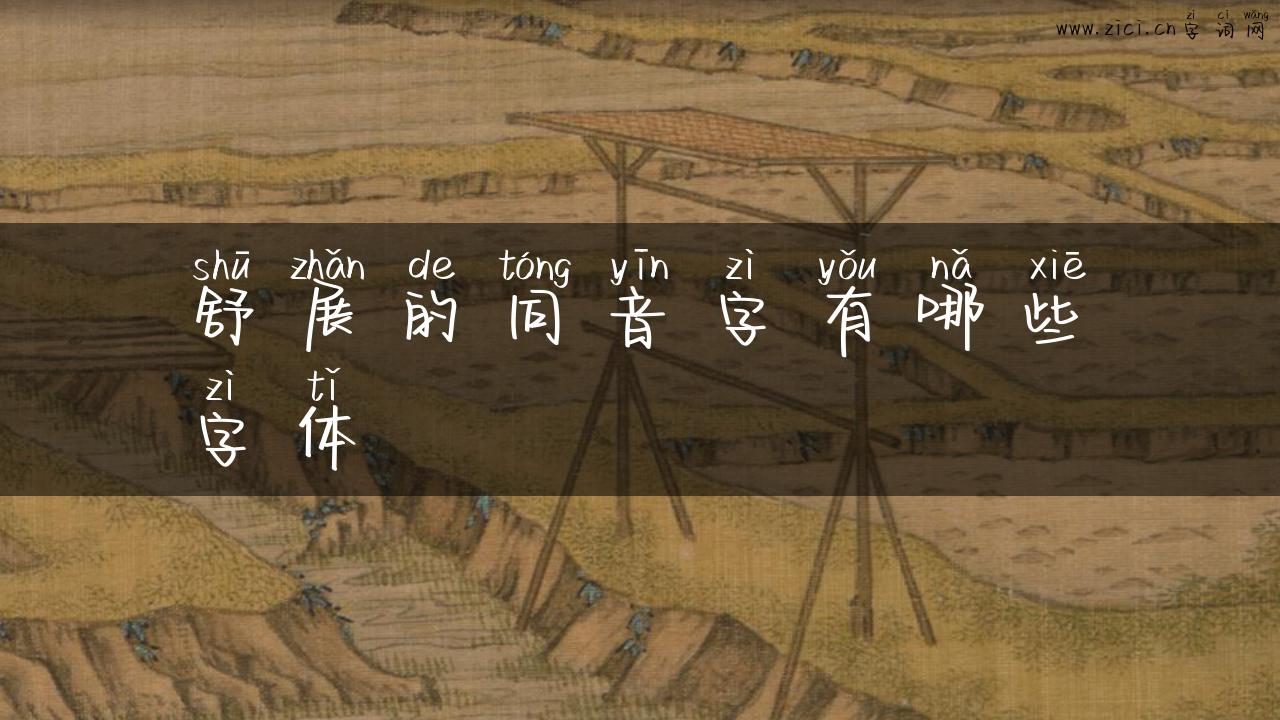 zì cí wǎng
www.zici.cn 字词网
shū zhǎn de tóng yīn zì yǒu nǎ xiē
舒展的同音字有哪些
zì tǐ
字体